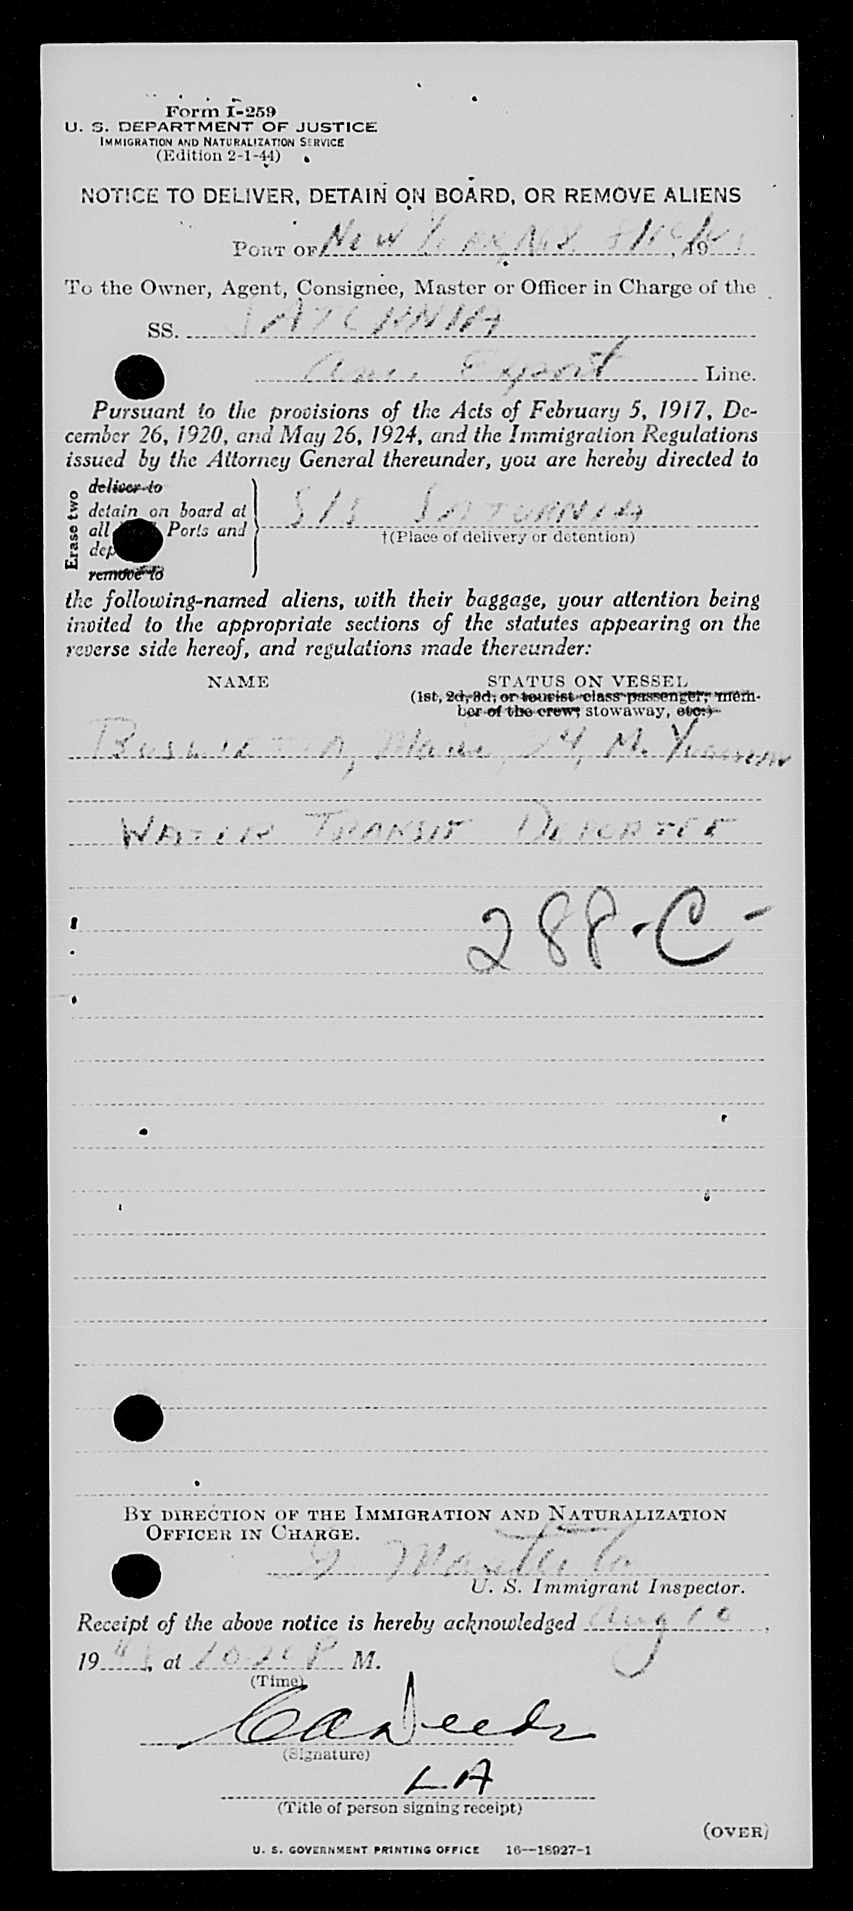 Form I-259
U. S. DEPARTMENT OF JUSTICE
IMMIGRATION AND NATURALIZATION SERVICE
(Edition 2-1-44)
NOTICE TO DELIVER, DETAIN ON BOARD, OR REMOVE ALIENS
PORT OF New York, N.Y. , 19
To the Owner, Agent, Consignee, Master or Officer in Charge of the
SS. SATURNIA
Amer. Export Line.
Pursuant to the provisions of the Acts of February 5, 1917, De-
cember 26, 1920, and May 26, 1924, and the Immigration Regulations
issued by the Attorney General thereunder, you are hereby directed to
Erase two
deliver to
detain on board at
all Ports and
dep
remove to
S/S SATURNIA
†(Place of delivery or detention)
the following-named aliens, with their baggage, your attention being
invited to the appropriate sections of the statutes appearing on the
reverse side hereof, and regulations made thereunder:
NAME STATUS ON VESSEL
(1st, 2d, 3d, or tourist class passenger, mem-
ber of the crew, stowaway, etc.)
24, M.
WATER TRANSIT DEPORTEE
288-C-
BY DIRECTION OF THE IMMIGRATION AND NATURALIZATION
OFFICER IN CHARGE.
U. S. Immigrant Inspector.
Receipt of the above notice is hereby acknowledged Aug 10,
19 , at P M.
(Time)
(Signature)
LA
(Title of person signing receipt)
(OVER)
U. S. GOVERNMENT PRINTING OFFICE 16—18927-1